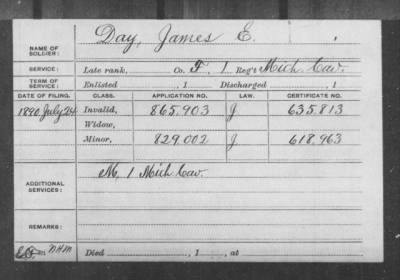 Day, James E.
NAME OF SOLDIER:
SERVICE: Late rank, Co. F, 1 Reg't Mich. Cav.
TERM OF SERVICE: Enlisted , 1 Discharged , 1
DATE OF FILING. CLASS. APPLICATION NO. LAW. CERTIFICATE NO.
1890 July 24 Invalid, 865.903 J 635.813
Widow,
Minor, 829.002 J 618.963
M, 1 Mich Cav.
ADDITIONAL SERVICES:
REMARKS:
Died , 1 , at